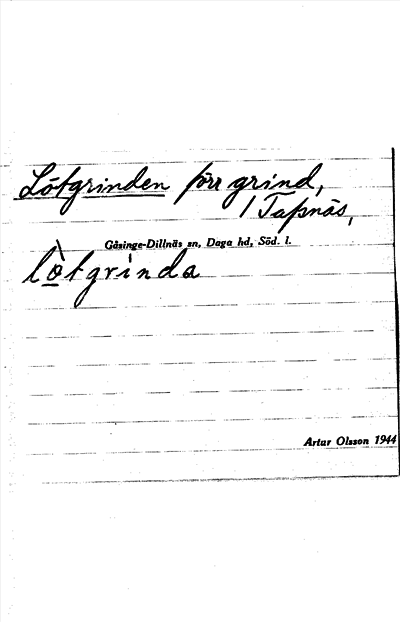 Lötgrinden förr grind,
/ Tapnäs,
Gåsinge-Dillnäs sn, Daga hd, Söd. l.
lö̀tgrinda
Artur Olsson 1944